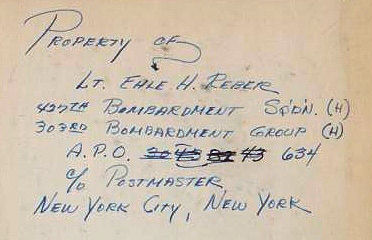 PROPERTY OF
LT. EALE H. REBER
427TH BOMBARDMENT SQ'DN. (H)
303RD BOMBARDMENT GROUP (H)
A.P.O. 634
c/o POSTMASTER
NEW YORK CITY, NEW YORK